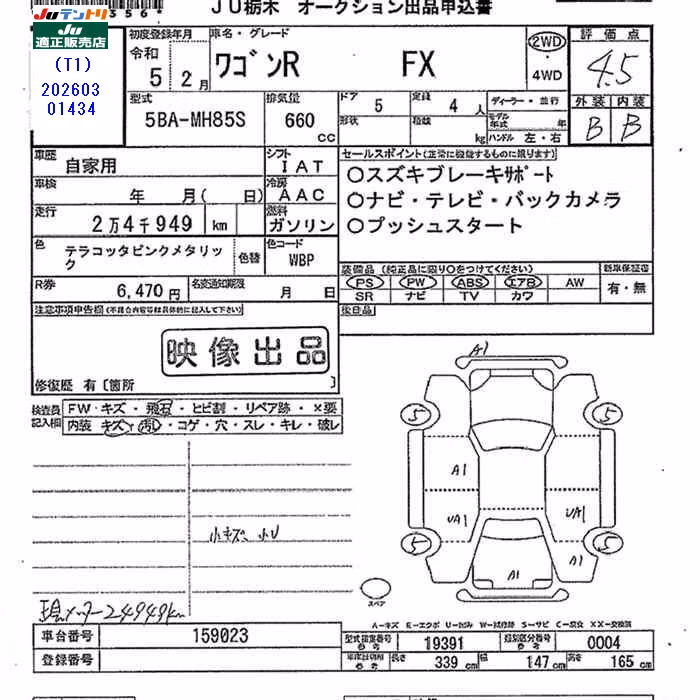 JU栃木 オークション出品申込書
Juテントリ
JU
適正販売店
(T1)
202603
01434
初度登録年月
令和
5 2月
車名・グレード
ワゴンR FX
2WD
4WD
評価点
4.5
外装 内装
B B
型式
5BA-MH85S
排気量
660 cc
ドア 5
定員 4 人
形状
積載 kg
ディーラー・並行
モデル年式 年
ハンドル 左・右
車歴
自家用
シフト
IAT
車検
年 月( 日)
冷房
AAC
走行
2万4千949 km
燃料
ガソリン
色
テラコッタピンクメタリック
色替
色コード
WBP
R券
6,470円
名変通知期限
月 日
セールスポイント(正常に機能するものに限ります)
○スズキブレーキサポート
○ナビ・テレビ・バックカメラ
○プッシュスタート
装備品(純正品に限り○をつけてください)
PS PW ABS エアB AW
SR ナビ TV カワ
新車保証書
有・無
後日品
注意事項申告欄(不具合内容等は具体的に記入して下さい)
映像出品
修復歴 有〔箇所 〕
検査員記入欄
FW・キズ・飛石・ヒビ割・リペア跡・×要
内装 キズ・汚レ・コゲ・穴・スレ・キレ・破レ
小キズ、小U
現メーター24949km
A1
5 5
A1
UA1 UA1
5 5
A1 A1
スペア
A-キズ E-エクボ U-凹み W-補修跡 S-サビ C-腐食 XX-交換済
車台番号
159023
登録番号
型式指定番号 参考
19391
類別区分番号 参考
0004
長さ 339 cm 幅 147 cm 高さ 165 cm